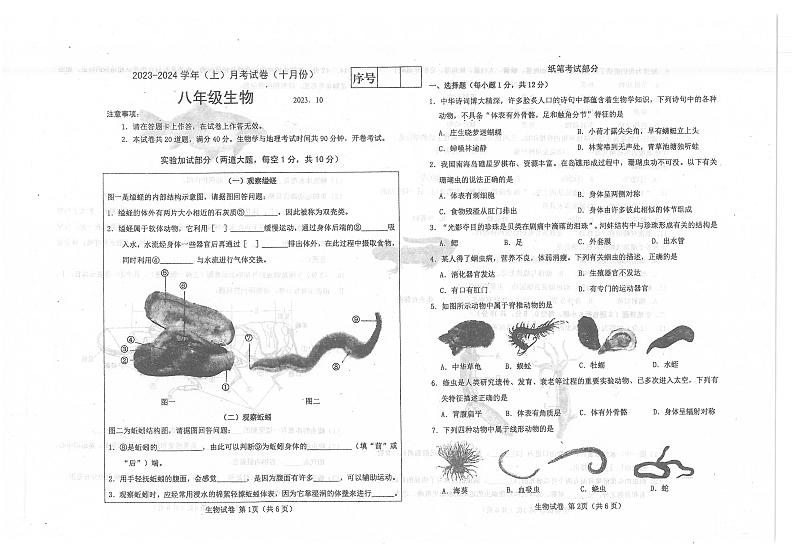 2023-2024 学年（上）月考试卷（十月份）
序号
八年级生物 2023. 10
注意事项：
1. 请在答题卡上作答，在试卷上作答无效。
2. 本试卷共 20 道题，满分 40 分。生物学与地理考试时间共 90 分钟，开卷考试。
实验加试部分（两道大题，每空 1 分，共 10 分）
（一）观察缢蛏
图一是缢蛏的内部结构示意图，请据图回答问题：
1. 缢蛏的体外有两片大小相近的石灰质⑤______，因此被称为双壳类。
2. 缢蛏属于软体动物，它利用 [ ] ______缓慢运动，通过身体后端的③______吸
入水，水流经身体一些器官后再通过 [ ] ______排出体外，在此过程中摄取食物，
同时利用④______ 与水流进行气体交换。
⑥
⑧
⑤
④
③
②
①
⑦
⑨
图一 图二
（二）观察蚯蚓
图二为蚯蚓结构图，请据图回答问题：
1. ⑧是蚯蚓的______，由此可以判断⑨为蚯蚓身体的______（填“前”或
“后”）端。
2. 用手轻抚蚯蚓的腹面，会感觉______，是因为腹面有许多______，可以辅助运动。
3. 观察蚯蚓时，应经常用浸水的棉絮轻擦蚯蚓体表，因为它靠湿润的体壁来进行______。
生物试卷 第 1页（共 6 页）
纸笔考试部分
一、选择题（每小题 1 分，共 12 分）
1. 中华诗词博大精深，许多脍炙人口的诗句中都蕴含着生物学知识，下列诗句中的各种
动物，不具备“体表有外骨骼，足和触角分节”特征的是
A. 庄生晓梦迷蝴蝶 B. 小荷才露尖尖角，早有蜻蜓立上头
C. 蝉噪林逾静 D. 林莺啼到无声处，青草池塘独听蛙
2. 我国南海岛礁星罗棋布、资源丰富。在岛礁形成过程中，珊瑚虫功不可没。以下有关
珊瑚虫的说法正确的是
A. 体表有刺细胞 B. 身体呈两侧对称
C. 食物残渣从肛门排出 D. 身体由许多彼此相似的体节组成
3. “光影夺目的珍珠是贝类在剧痛中滴落的泪珠”。河蚌结构中与珍珠形成有关的结构是
A. 鳃 B. 足 C. 外套膜 D. 出水管
4. 某人得了蛔虫病，营养不良，体弱消瘦。下列有关蛔虫的描述，正确的是
A. 消化器官发达 B. 生殖器官不发达
C. 有口有肛门 D. 有专门的运动器官
5. 如图所示动物中属于脊椎动物的是
A. 中华草龟 B. 蜈蚣 C. 牡蛎 D. 水蛭
6. 线虫是人类研究遗传、发育、衰老等过程的重要实验动物、已多次进入太空，下列有
关特征描述正确的是
A. 背腹扁平 B. 体表有角质层 C. 体有外骨骼 D. 身体呈辐射对称
7. 下列四种动物中属于线形动物的是
A. 海葵 B. 血吸虫 C. 蛲虫 D. 蛇
生物试卷 第 2页（共 6 页）